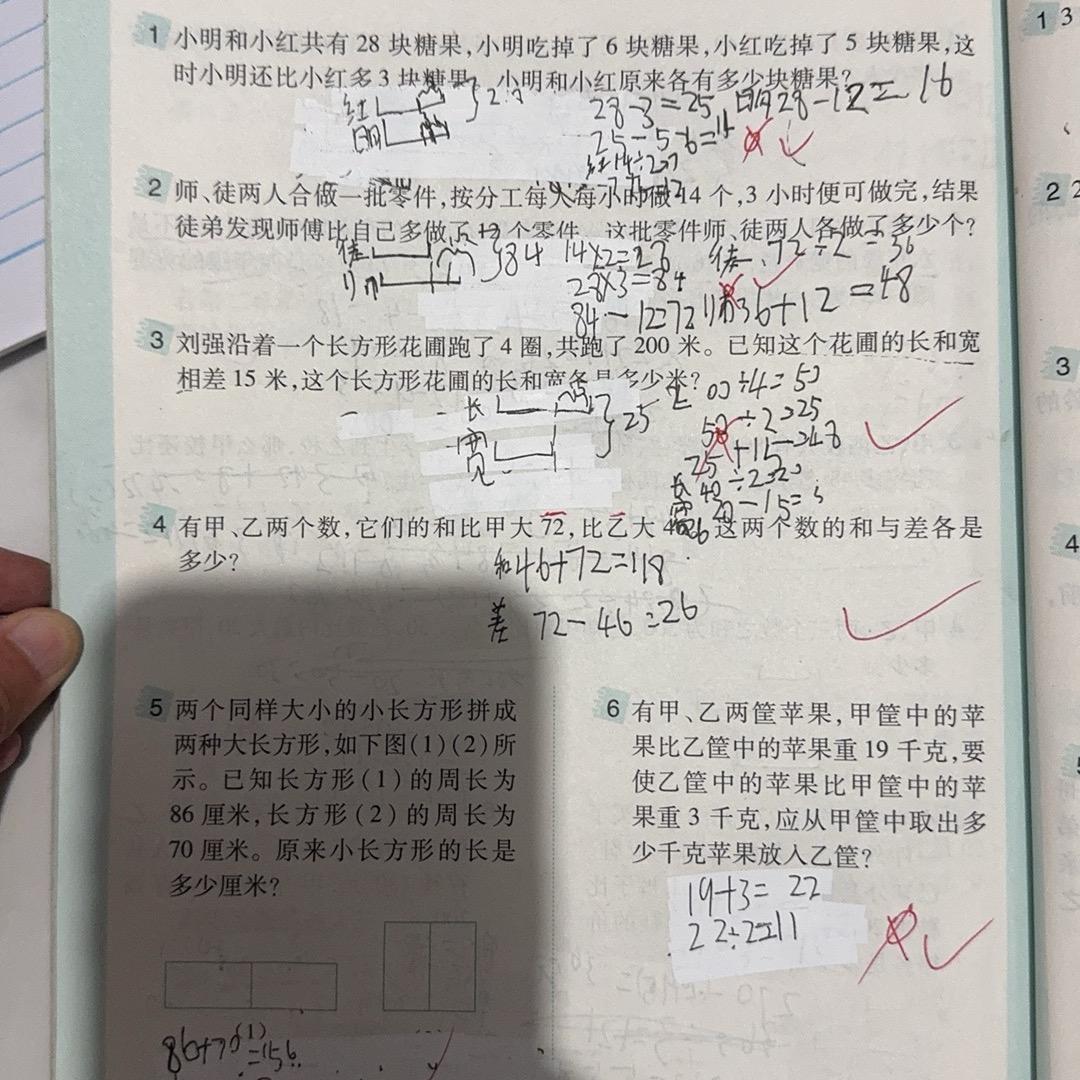 1 小明和小红共有 28 块糖果,小明吃掉了 6 块糖果,小红吃掉了 5 块糖果,这
时小明还比小红多 3 块糖果。小明和小红原来各有多少块糖果?
红
28-3=25
明28-12=16
明
25-5-6=14
2 师、徒两人合做一批零件,按分工每人每小时做 14 个,3 小时便可做完,结果
徒弟发现师傅比自己多做了 12 个零件。这批零件师、徒两人各做了多少个?
徒
84
14×2=28
徒 72÷2=36
28×3=84
84-12=72
师36+12=48
3 刘强沿着一个长方形花圃跑了 4 圈,共跑了 200 米。已知这个花圃的长和宽
相差 15 米,这个长方形花圃的长和宽各是多少米?
长
25
00÷4=50
50÷2=25
宽
25+15=40
长 40÷2=20
20-15=5
4 有甲、乙两个数,它们的和比甲大 72,比乙大 46,这两个数的和与差各是
多少?
和46+72=118
差 72-46=26
5 两个同样大小的小长方形拼成
两种大长方形,如下图(1)(2)所
示。已知长方形(1)的周长为
86 厘米,长方形(2)的周长为
70 厘米。原来小长方形的长是
多少厘米?
(1)
86+70=156
6 有甲、乙两筐苹果,甲筐中的苹
果比乙筐中的苹果重 19 千克,要
使乙筐中的苹果比甲筐中的苹
果重 3 千克,应从甲筐中取出多
少千克苹果放入乙筐?
19+3= 22
22÷2=11
1 3
2 2
3
4